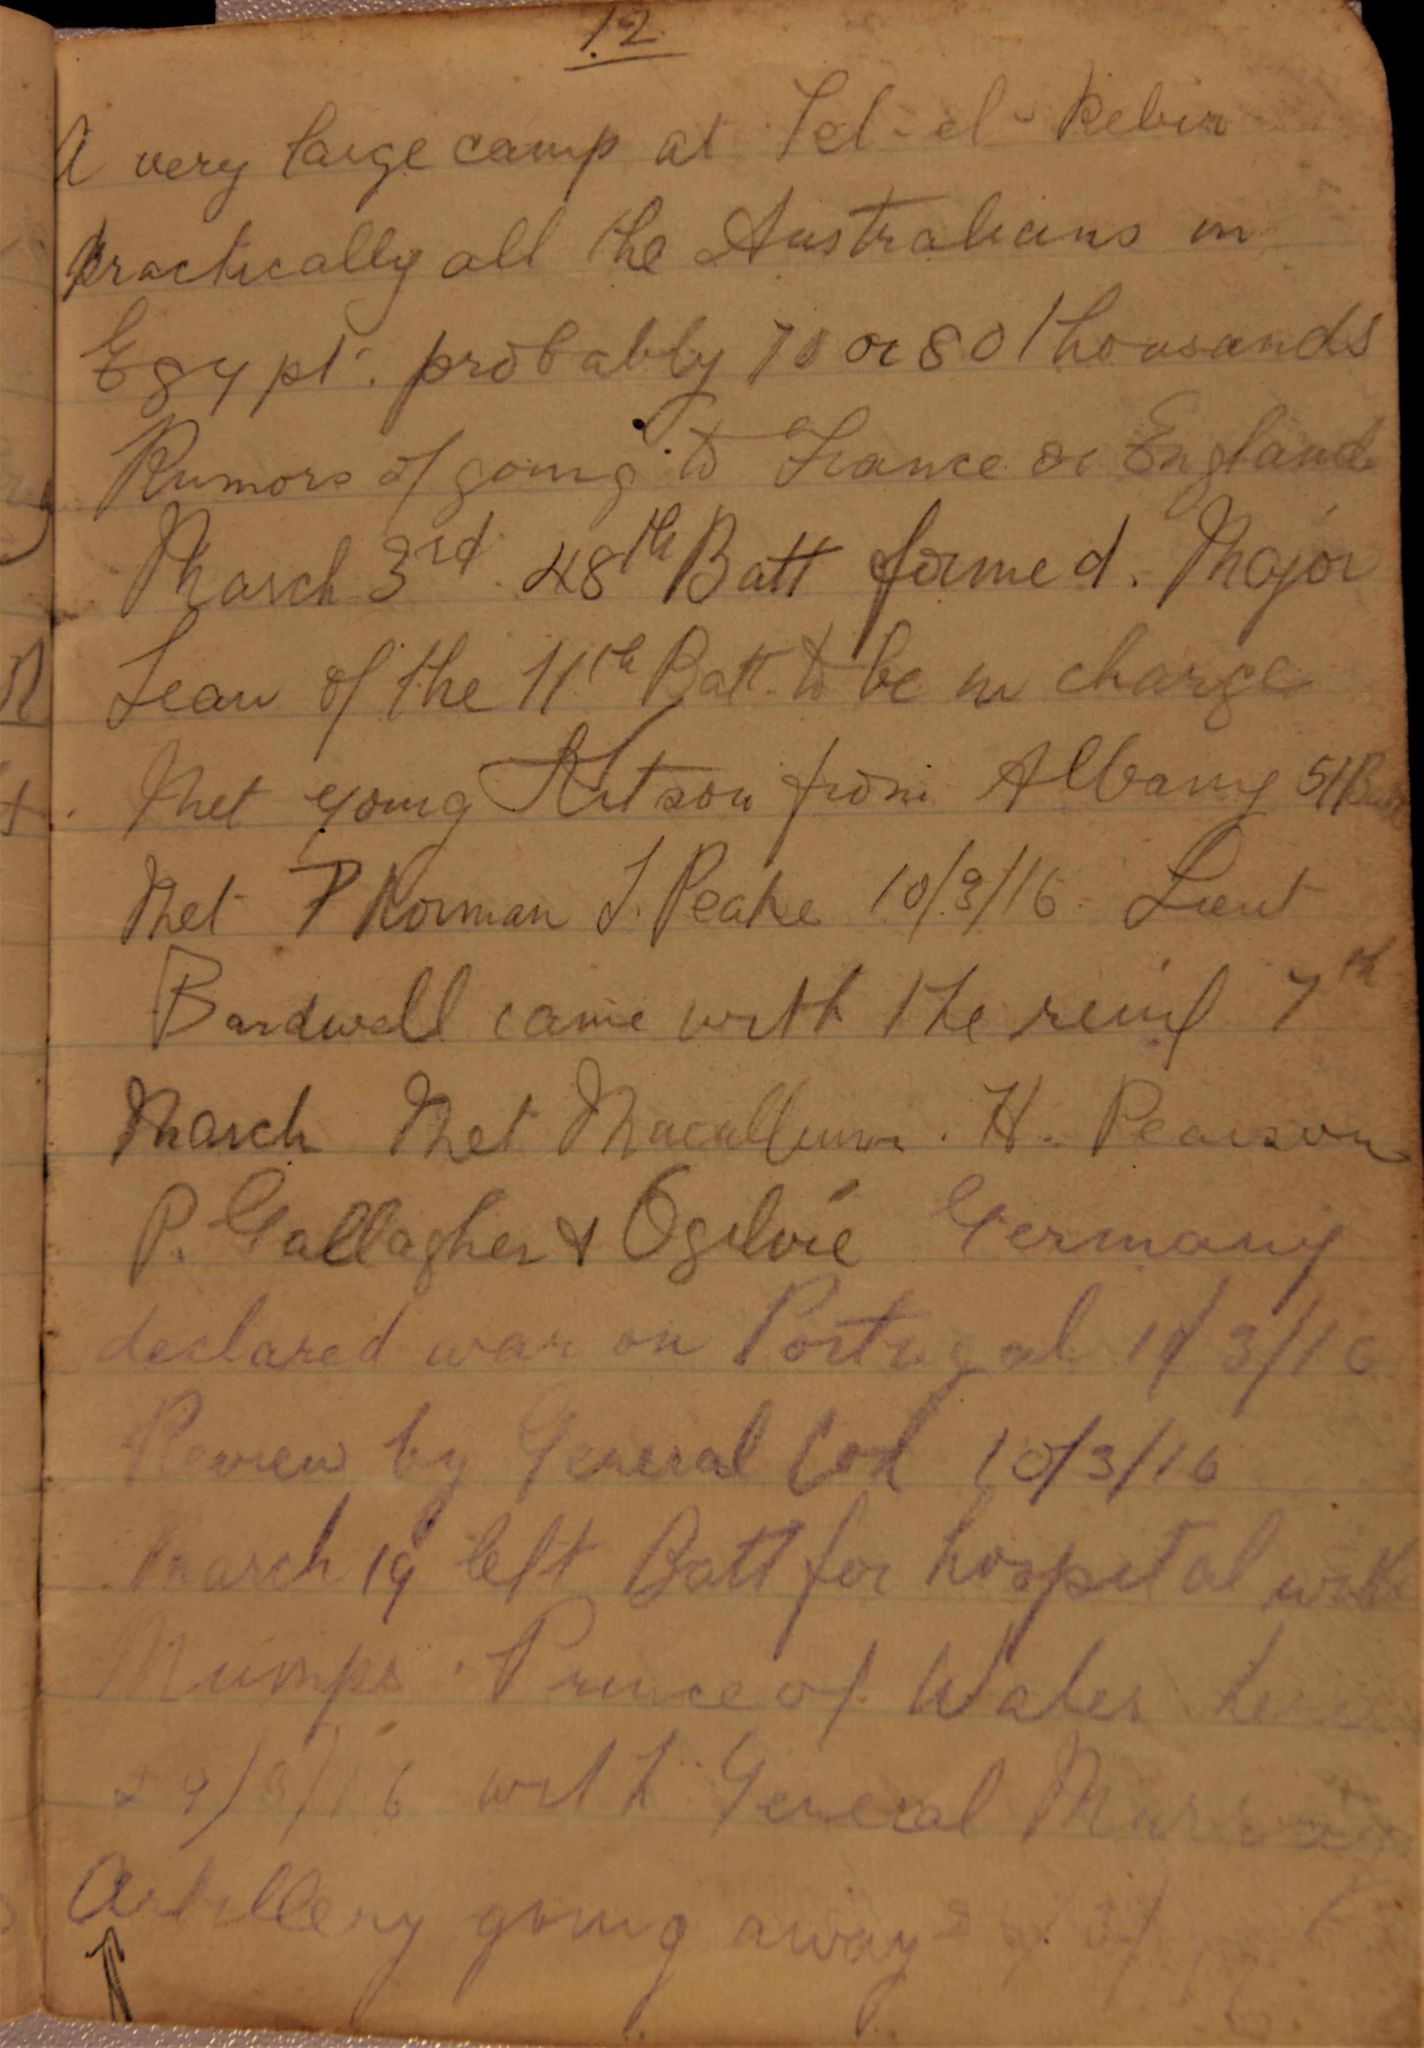 12
A very large camp at Tel-el-Kebir
practically all the Australians in
Egypt. probably 70 or 80 thousands
Rumors of going to France or England
March 3rd 48th Batt formed. Major
Lean of the 11th Batt to be in charge
Met young Kitson from Albany 51 Batt
Met P Norman J. Peake 10/3/16 Lieut
Bardwell came with the reinf 7th
March Met Macallum. H. Pearson
P. Gallagher & Ogilvie Germany
declared war on Portugal 3/16
Review by General Cox 10/3/16
March 19 left Batt for hospital with
Mumps. Prince of Wales here
29/3/16 with General Murray
Artillery going away